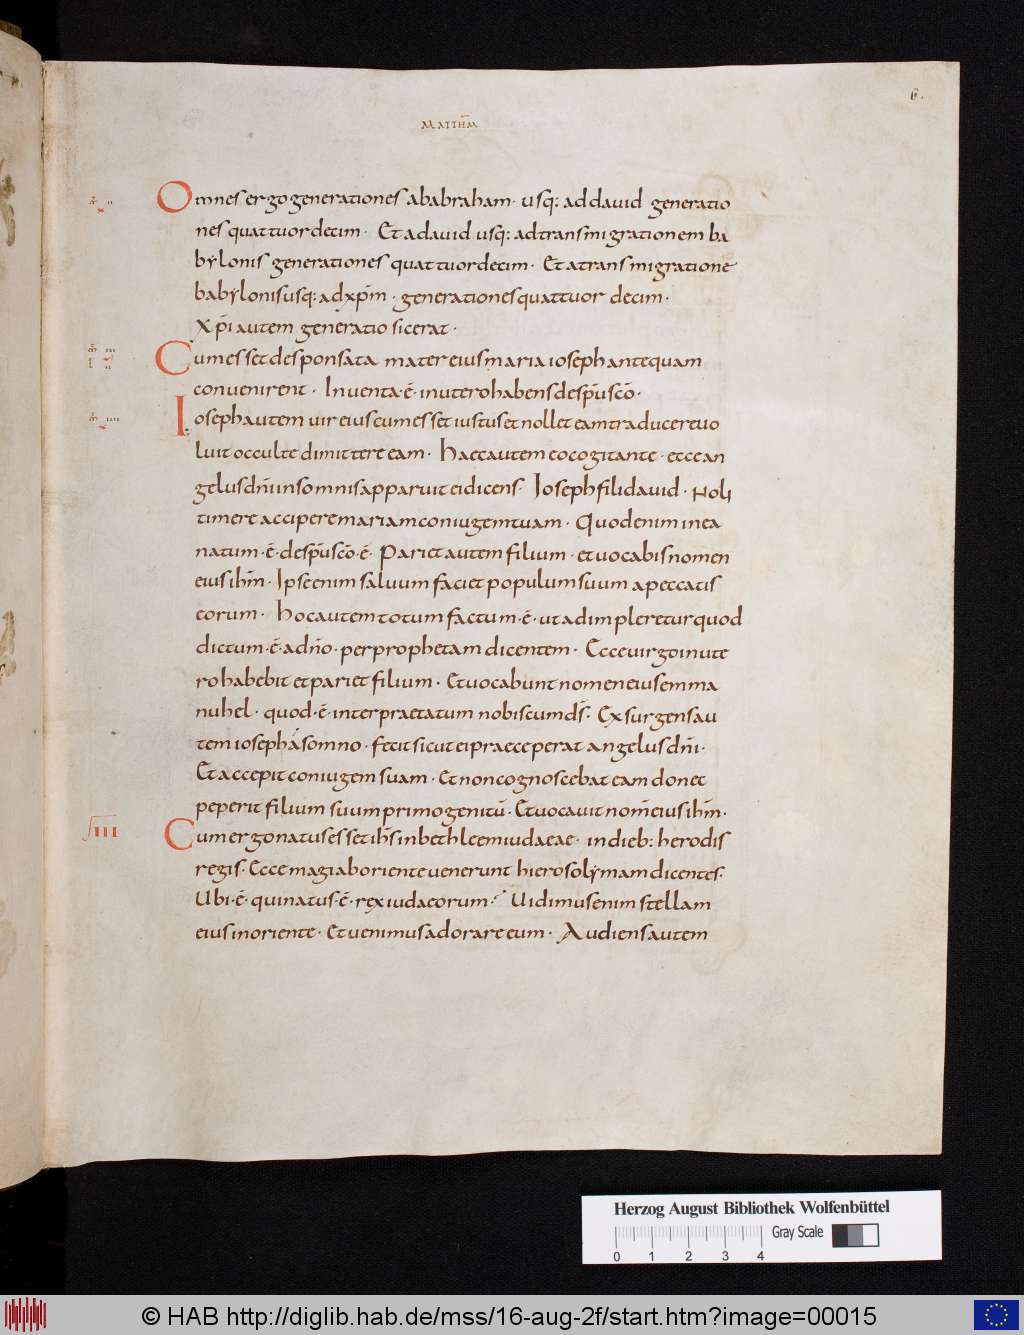 6.
MATTHM̄
Omnes ergo generationes ab abraham · usq: ad dauid generatio
nes quattuordecim · Et a dauid usq: ad transmigrationem ba
bẏlonis generationes quattuordecim · Et a transmigratione
babẏlonis usq: ad xp̄m · generationes quattuor decim ·
Xp̄i autem generatio sic erat ·
Cum esset desponsata mater eius maria ioseph antequam
conuenirent · Inuenta ·ē· in utero habens de sp̄u sc̄o ·
Ioseph autem uir eius cum esset iustus et nollet eam traducere uo
luit occulte dimittere eam · Haec autem eo cogitante · etce an
gelus dn̄i in somnis apparuit ei dicens · Ioseph fili dauid · Noli
timere accipere mariam coniugem tuam · Quod enim in ea
natum ·ē· de sp̄u sc̄o ·ē· Pariet autem filium · et uocabis nomen
eius ih̄m · Ipse enim saluum faciet populum suum a peccatis
eorum · Hoc autem totum factum ·ē· ut adimpleretur quod
dictum ·ē· a dn̄o · per prophetam dicentem · Ecce uirgo in ute
ro habebit et pariet filium · Et uocabunt nomen eius emma
nuhel · quod ·ē· interpraetatum nobiscum ds̄ · Exsurgens au
tem ioseph á somno · fecit sicut ei praeceperat angelus dn̄i ·
Et accepit coniugem suam · Et non cognoscebat eam donec
peperit filium suum primogenitū · Et uocauit nom̄ eius ih̄m ·
III
Cum ergo natus esset ih̄s in bethleem iudaeae · in dieb: herodis
regis · Ecce magi ab oriente uenerunt hierosolẏmam dicentes ·
Ubi ·ē· qui natus ·ē· rex iudaeorum · Uidimus enim stellam
eius in oriente · Et uenimus adorare eum · Audiens autem
Herzog August Bibliothek Wolfenbüttel
Gray Scale
0 1 2 3 4
© HAB http://diglib.hab.de/mss/16-aug-2f/start.htm?image=00015